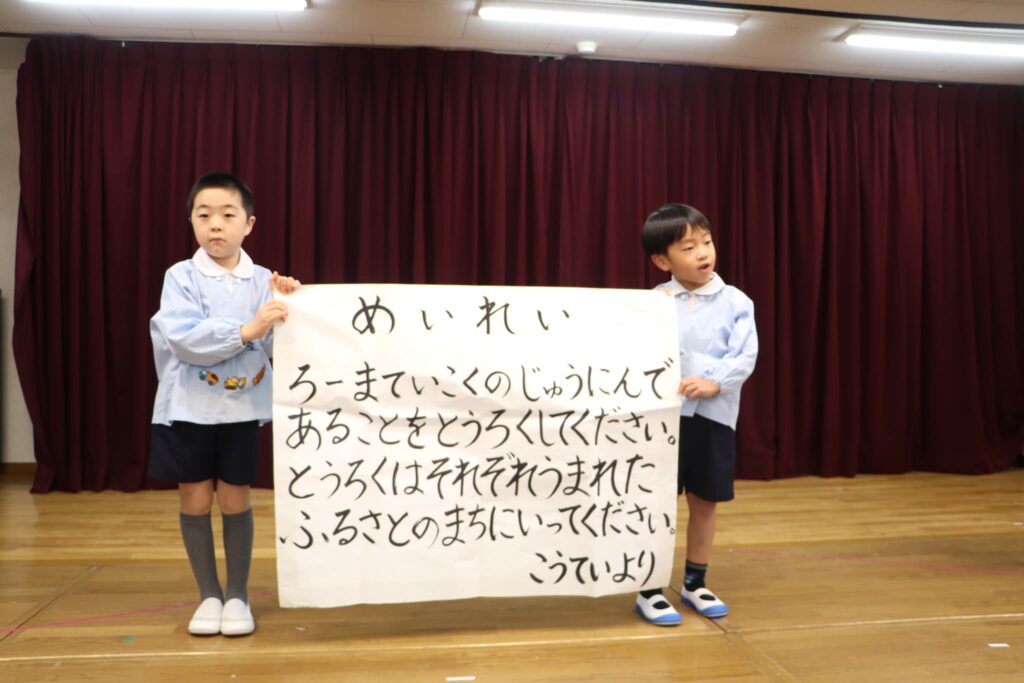 めいれい
ろーまていこくのじゅうにんで
あることをとうろくしてください。
とうろくはそれぞれうまれた
ふるさとのまちにいってください。
こうていより